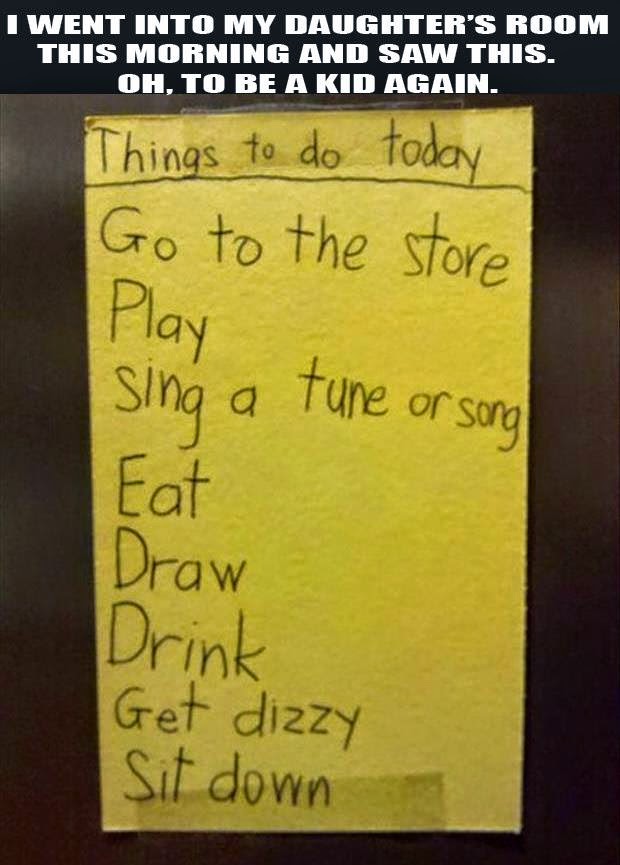 I WENT INTO MY DAUGHTER'S ROOM
THIS MORNING AND SAW THIS.
OH, TO BE A KID AGAIN.
Things to do today
Go to the store
Play
sing a tune or song
Eat
Draw
Drink
Get dizzy
Sit down